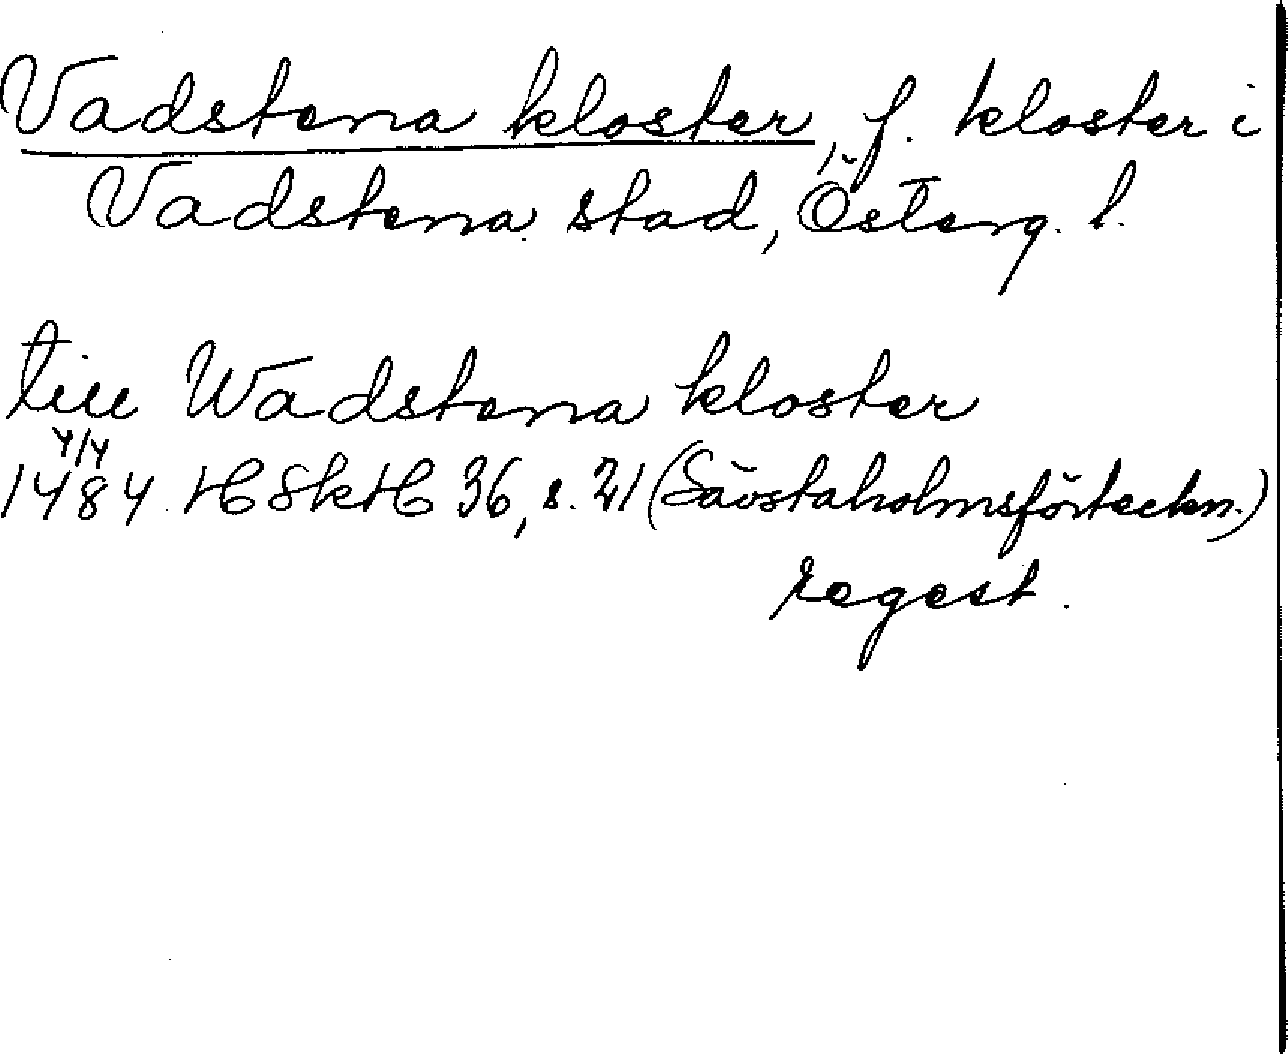 Vadstena kloster, f. kloster i
Vadstena stad, Österg. l.
till Wadstena kloster
4/4
1484 HSkH 36, s. 21 (Sävstaholmsförteckn.)
regest.